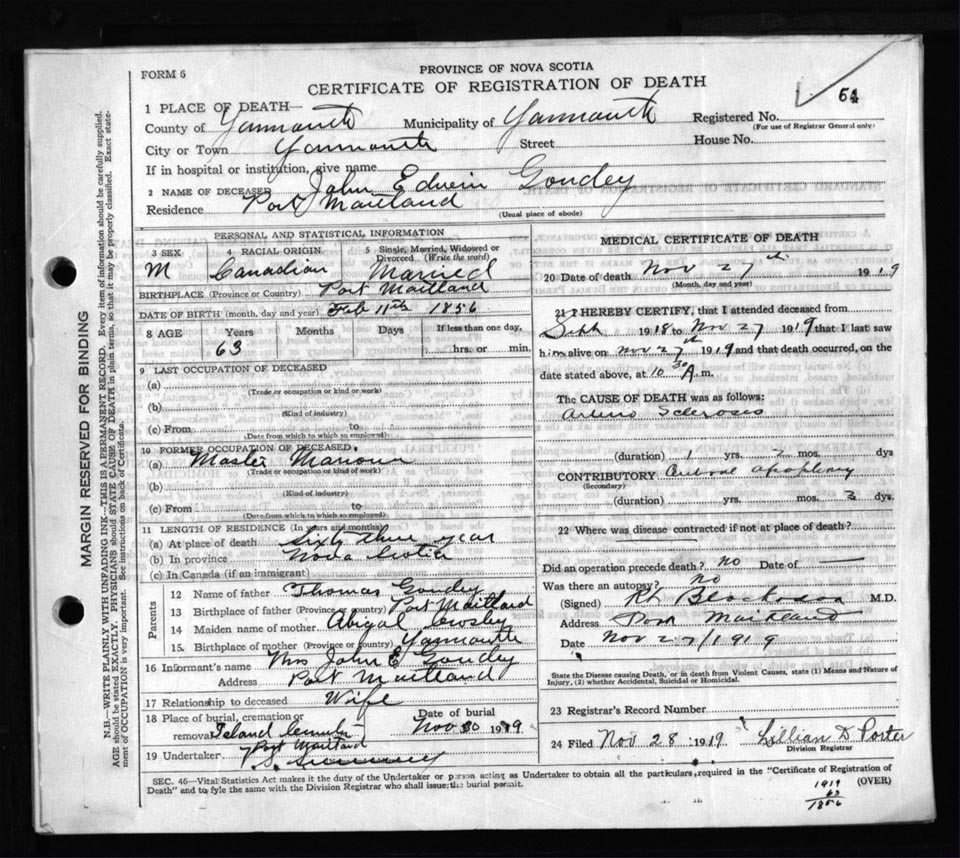 PROVINCE OF NOVA SCOTIA
FORM 6
CERTIFICATE OF REGISTRATION OF DEATH
54
1 PLACE OF DEATH—
County of Yarmouth Municipality of Yarmouth Registered No.
(For use of Registrar General only)
City or Town Yarmouth Street House No.
If in hospital or institution, give name
2 NAME OF DECEASED John Edwin Goudey
Residence Port Maitland
(Usual place of abode)
PERSONAL AND STATISTICAL INFORMATION
3 SEX 4 RACIAL ORIGIN 5 Single, Married, Widowed or Divorced (Write the word)
M Canadian Married
BIRTHPLACE (Province or Country) Port Maitland
DATE OF BIRTH (month, day and year) Feb 11th 1856
8 AGE Years Months Days If less than one day,
63 hrs. or min.
9 LAST OCCUPATION OF DECEASED
(a)
(Trade or occupation or kind or work)
(b)
(Kind of industry)
(c) From to
(Date from which to which so employed)
10 FORMER OCCUPATION OF DECEASED
(a) Master Marioun
(Trade or occupation or kind of work)
(b)
(Kind of industry)
(c) From to
(Date from which to which so employed)
11 LENGTH OF RESIDENCE (In years and months)
(a) At place of death Sixty three year
(b) In province Nova Scotia
(c) In Canada (if an immigrant)
Parents
12 Name of father Thomas Goudey
13 Birthplace of father (Province or Country) Port Maitland
14 Maiden name of mother Abigal Crosby
15. Birthplace of mother (Province or country) Yarmouth
16 Informant's name Mrs John E Goudey
Address Port Maitland
17 Relationship to deceased Wife
18 Place of burial, cremation or removal Island Port Maitland
Date of burial Nov 30 1919
19 Undertaker
MEDICAL CERTIFICATE OF DEATH
20 Date of death Nov 27th 1919
(Month, day and year)
21 I HEREBY CERTIFY, that I attended deceased from
Sept 1918 to Nov 27 1919 that I last saw
him alive on Nov 27th 1919 and that death occurred, on the
date stated above, at 10 30 A.m.
The CAUSE OF DEATH was as follows:
Arterio Sclerosis
(duration) 1 yrs. mos. dys
CONTRIBUTORY Cerebral apoplexy
(Secondary)
(duration) yrs. mos. 3 dys.
22 Where was disease contracted if not at place of death?
Did an operation precede death? no Date of —
Was there an autopsy? no
(Signed) M.D.
Address Port Maitland
Date Nov 27/1919
State the Disease causing Death, or in death from Violent Causes, state (1) Means and Nature of
Injury, (2) whether Accidental, Suicidal or Homicidal.
23 Registrar's Record Number
24 Filed Nov 28 1919 Lillian D Porter
Division Registrar
SEC. 46—Vital Statistics Act makes it the duty of the Undertaker or person acting as Undertaker to obtain all the particulars, required in the "Certificate of Registration of
Death" and to fyle the same with the Division Registrar who shall issue the burial permit.
(OVER)
1919
63
1856
MARGIN RESERVED FOR BINDING
N.B.—WRITE PLAINLY WITH UNFADING INK—THIS IS A PERMANENT RECORD. Every item of information should be carefully supplied.
AGE should be stated EXACTLY. PHYSICIANS should STATE CAUSE OF DEATH in plain terms, so that it may be properly classified. Exact statement of OCCUPATION is very important. See instructions on back of Certificate.